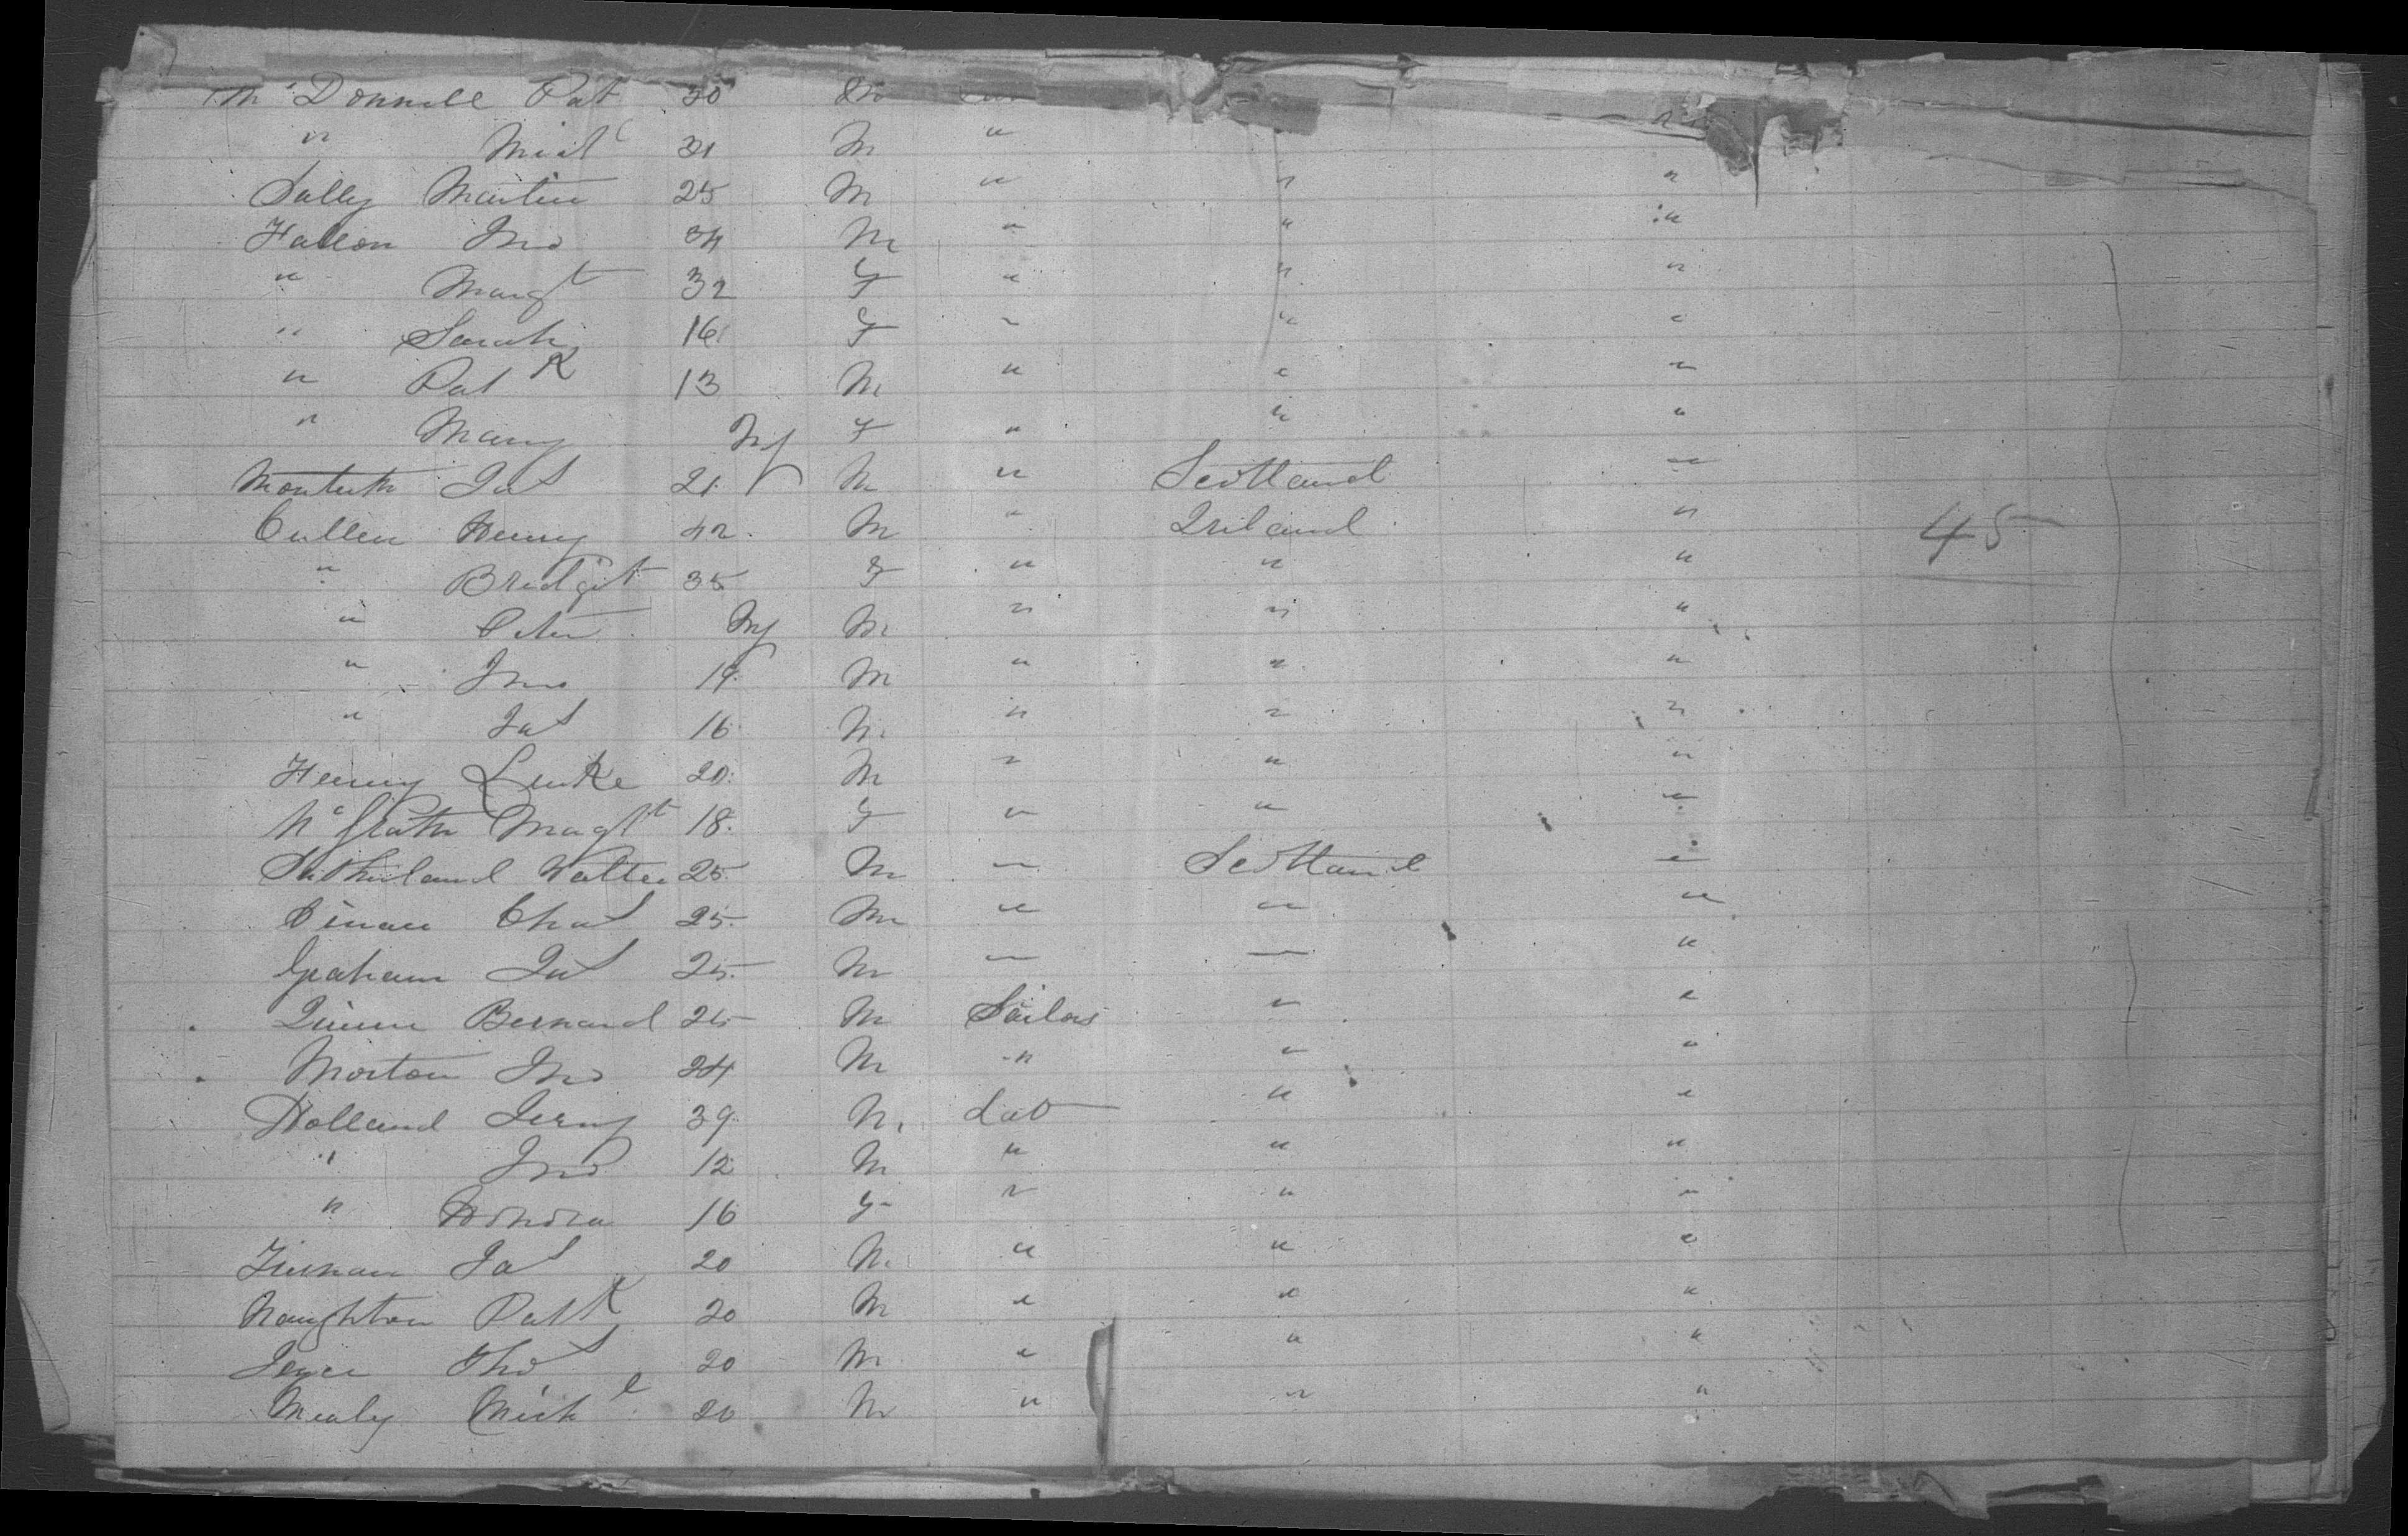 McDonnell Pat 30 M
" Michl 31 M "
Sally Martin 25 M " " "
Fallon Jno 34 M " " "
" Margt 32 F " " "
" Sarah 16 F " " "
" Patk 13 M " " "
" Mary Inf F " " "
Monteith Jas 21 M " Scotland "
Cullen Henry 42 M " Ireland " 45
" Bridget 35 F " " "
" Peter Inf M " " "
" Jno 19 M " " "
" Jas 16 M " " "
Henry Luke 20 M " " "
McGrath Magt 18 F " " "
Sutherland Walter 25 M " Scotland "
Chas 25 M " " "
Graham Jas 25 M " " "
Quinn Bernard 25 M Sailor " "
Morton Jno 24 M " " "
Holland Jerry 39 M Lab " "
" Jno 12 M " " "
" Honora 16 F " " "
Tiernan Jas 20 M " " "
Naughton Patk 20 M " " "
Joyce Thos 20 M " " "
Mealy Michl 20 M " " "